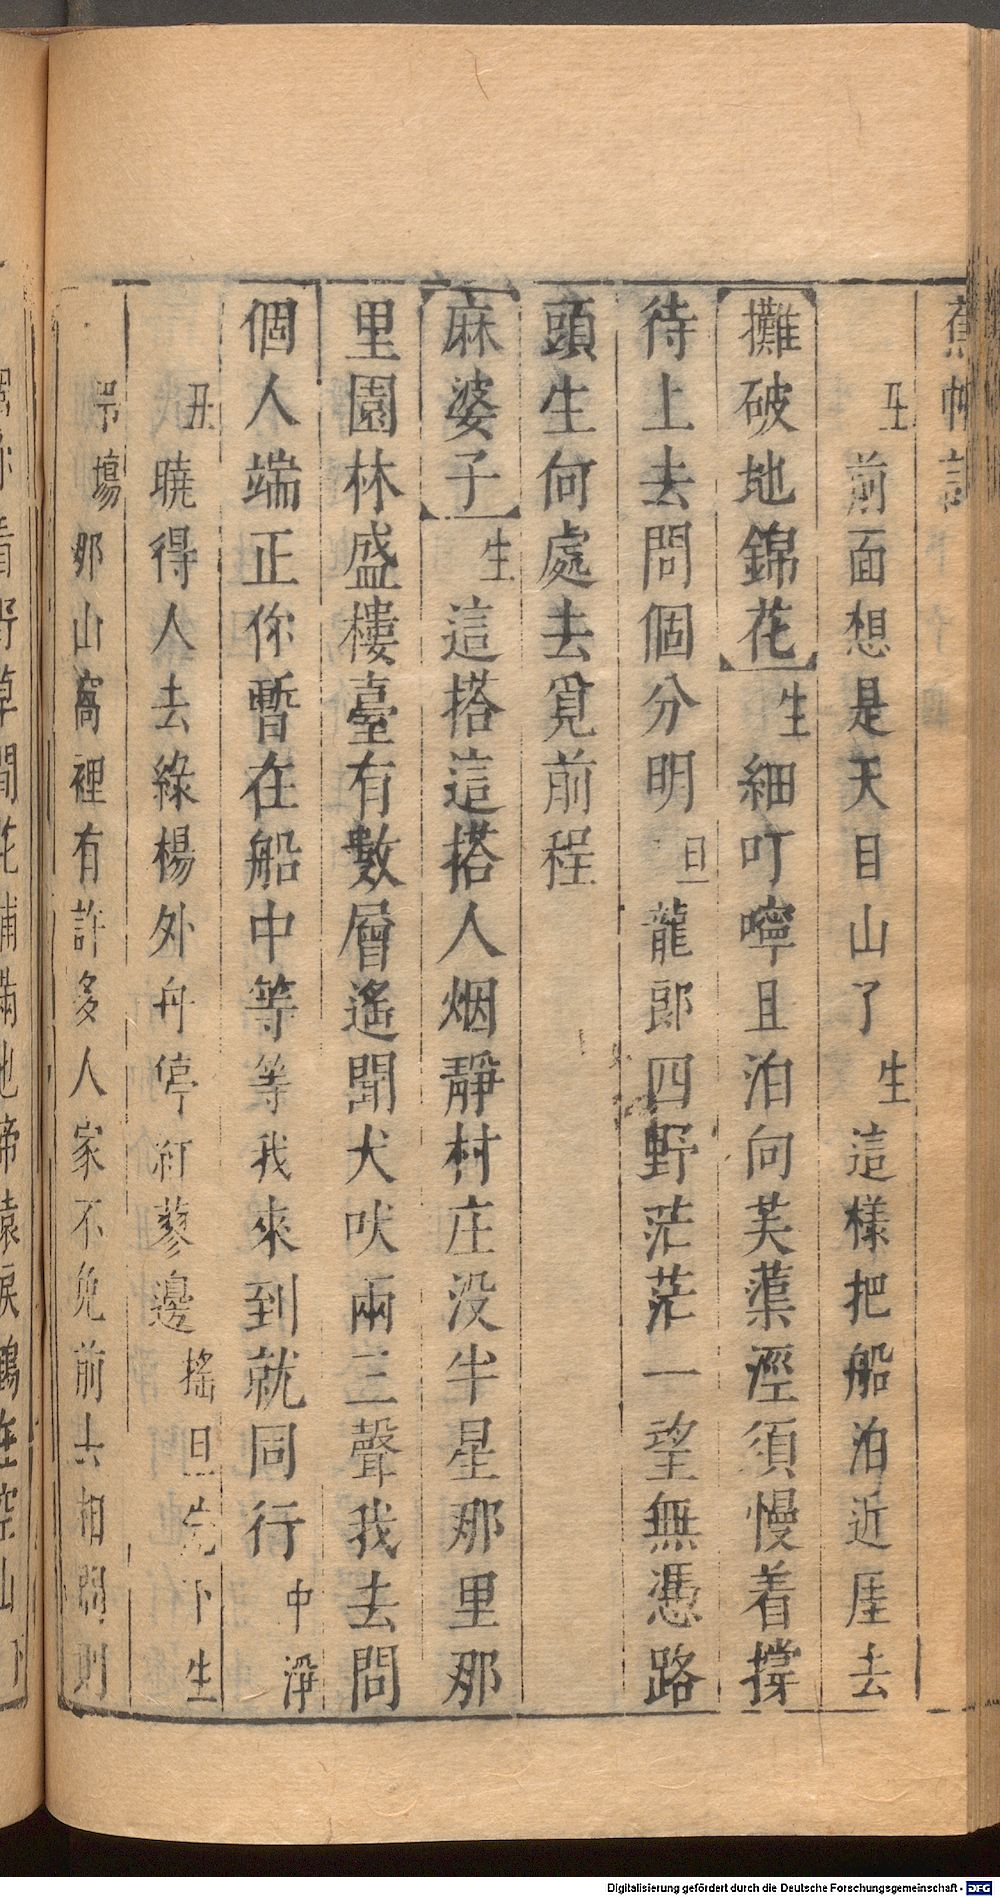 蕉帕記
生前面想是天目山了生這樣把船泊近厓去
攤破地錦花生細叮嚀且泊向芙蕖涇須慢着撐
待上去問個分明旦龍郎四野茫茫一望無憑路
頭生何處去覓前程
麻婆子生這搭這搭人烟靜村庄没半星那里那
里園林盛樓臺有數層遙聞犬吠兩三聲我去問
個人端正你暫在船中等等我來到就同行中淨
丑曉得人去綠楊外舟停紅蓼邊搖旦先下生
吊塲那山窩裡有許多人家不免前去相問則
看野草間花鋪滿地啼猿淚鶴在空山下
Digitalisierung gefördert durch die Deutsche Forschungsgemeinschaft - DFG